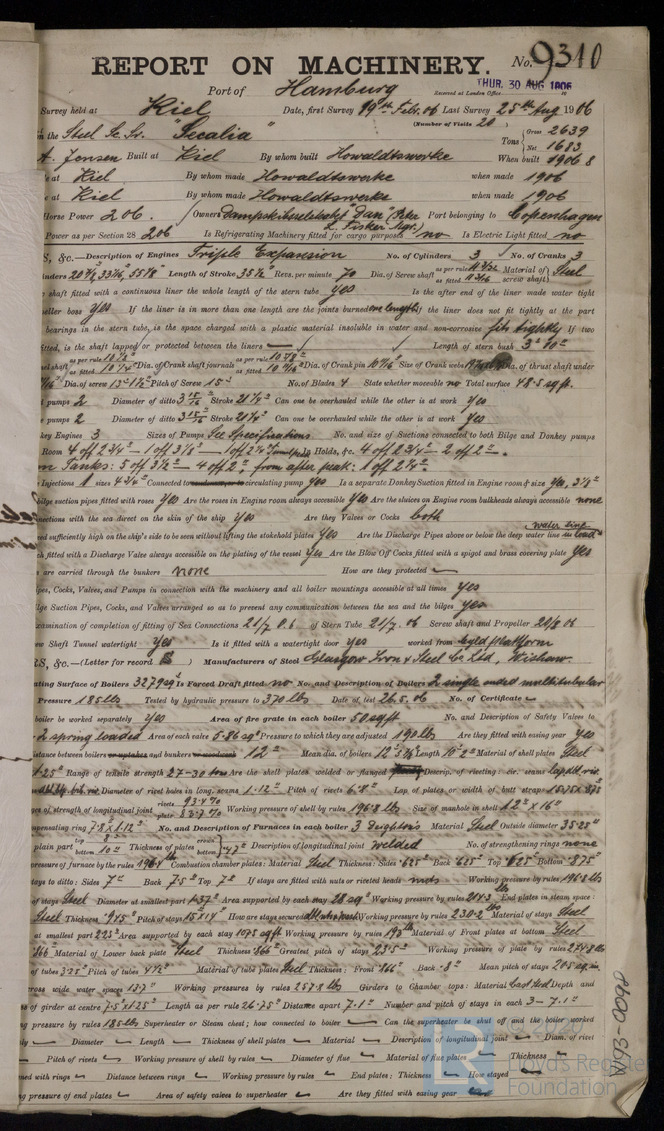 REPORT ON MACHINERY. No. 9310
Port of Hamburg Received at London Office THUR. 30 AUG 1906
Survey held at Kiel Date, first Survey 19th Feb. 06 Last Survey 25th Aug 1906
(Number of Visits 20)
the Steel Sc. Sr. "Secalia" Tons Gross 2639
Net 1683
A. Jensen Built at Kiel By whom built Howaldtswerke When built 1906 8
at Kiel By whom made Howaldtswerke when made 1906
at Kiel By whom made Howaldtswerke when made 1906
Horse Power 206. Owners Dampskibsselskabet "Dan" (Peter L. Fisker Mgr.) Port belonging to Copenhagen
Power as per Section 28 206 Is Refrigerating Machinery fitted for cargo purposes no Is Electric Light fitted no
S, &c.—Description of Engines Triple Expansion No. of Cylinders 3 No. of Cranks 3
Length of Stroke 35½ Revs. per minute 70 Dia. of Screw shaft as per rule as fitted Material of screw shaft Steel
shaft fitted with a continuous liner the whole length of the stern tube yes Is the after end of the liner made water tight
peller boss yes If the liner is in more than one length are the joints burned one length If the liner does not fit tightly at the part
bearings in the stern tube, is the space charged with a plastic material insoluble in water and non-corrosive fits tightly If two
fitted, is the shaft lapped or protected between the liners — Length of stern bush
as per rule as fitted Dia. of Crank shaft journals as per rule as fitted Dia. of Crank pin Size of Crank webs Dia. of thrust shaft under
Dia. of screw Pitch of Screw 15 No. of Blades 4 State whether moveable no Total surface 48.5 sq ft.
pumps 2 Diameter of ditto 3 15/16 Stroke Can one be overhauled while the other is at work yes
pumps 2 Diameter of ditto 3 15/16 Stroke Can one be overhauled while the other is at work yes
key Engines 3 Sizes of Pumps See Specifications No. and size of Suctions connected to both Bilge and Donkey pumps
Room 4 off 2¾ — 1 off 3½ — In Holds, &c. 4 off 2¾ — 2 off 2".
Tanks: 5 off 3½" — 4 off 2", from after peak: 1 off
Injections 1 sizes Connected to circulating pump yes Is a separate Donkey Suction fitted in Engine room & size yes, 3½"
bilge suction pipes fitted with roses yes Are the roses in Engine room always accessible yes Are the sluices on Engine room bulkheads always accessible none
nections with the sea direct on the skin of the ship yes Are they Valves or Cocks both
ed sufficiently high on the ship's side to be seen without lifting the stokehold plates yes Are the Discharge Pipes above or below the deep water line
h fitted with a Discharge Valve always accessible on the plating of the vessel yes Are the Blow Off Cocks fitted with a spigot and brass covering plate yes
are carried through the bunkers none How are they protected —
ipes, Cocks, Valves, and Pumps in connection with the machinery and all boiler mountings accessible at all times yes
ilge Suction Pipes, Cocks, and Valves arranged so as to prevent any communication between the sea and the bilges yes
xamination of completion of fitting of Sea Connections 21/7 06 of Stern Tube 21/7. 06 Screw shaft and Propeller 20/8 06
w Shaft Tunnel watertight yes Is it fitted with a watertight door yes worked from Cyld. Platform
RS, &c.—(Letter for record B) Manufacturers of Steel Glasgow Iron & Steel Co Ltd, Wishaw.
ating Surface of Boilers 3279 sq ft Is Forced Draft fitted no No. and Description of Boilers 2 single ended multitubular
Pressure 185 lbs Tested by hydraulic pressure to 370 lbs Date of test 26.5.06 No. of Certificate —
boiler be worked separately yes Area of fire grate in each boiler 50 sq ft No. and Description of Safety Valves to
2 spring loaded Area of each valve 5.86 sq" Pressure to which they are adjusted 190 lbs Are they fitted with easing gear yes
istance between boilers or uptakes and bunkers or woodwork 12" Mean dia. of boilers Length Material of shell plates Steel
1.25" Range of tensile strength 27-30 tons Are the shell plates welded or flanged Descrip. of riveting: cir. seams
Diameter of rivet holes in long. seams 1.12" Pitch of rivets 6.8" Lap of plates or width of butt straps
ges of strength of longitudinal joint rivets plate Working pressure of shell by rules 196.8 lbs Size of manhole in shell 12" x 16"
ompensating ring No. and Description of Furnaces in each boiler 3 Deightons Material Steel Outside diameter 35.25"
plain part top bottom Thickness of plates crown bottom Description of longitudinal joint welded No. of strengthening rings none
pressure of furnace by the rules Combustion chamber plates: Material Steel Thickness: Sides .625 Back .625 Top .625 Bottom .875
tays to ditto: Sides 7" Back 7.5" Top 7" If stays are fitted with nuts or riveted heads nuts Working pressure by rules 196.8 lbs
of stays Steel Diameter at smallest part 1.37" Area supported by each stay Working pressure by rules End plates in steam space:
Steel Thickness Pitch of stays 15 x 14" How are stays secured Working pressure by rules 230.2 lbs Material of stays Steel
at smallest part Area supported by each stay Working pressure by rules Material of Front plates at bottom Steel
.866 Material of Lower back plate Steel Thickness .866" Greatest pitch of stays 23.5" Working pressure of plate by rules
of tubes 3.25" Pitch of tubes 4½" Material of tube plates Steel Thickness: Front .866" Back .8" Mean pitch of stays
cross wide water spaces 13.7" Working pressures by rules 257.8 lbs Girders to Chamber tops: Material Depth and
s of girder at centre 7.5 x 1.25" Length as per rule 26.75" Distance apart 7.1" Number and pitch of stays in each 3 — 7.1"
g pressure by rules 185 lbs Superheater or Steam chest; how connected to boiler — Can the superheater be shut off and the boiler worked
— Diameter — Length — Thickness of shell plates — Material — Description of longitudinal joint — Diam. of rivet
Pitch of rivets — Working pressure of shell by rules — Diameter of flue — Material of flue plates — Thickness —
ned with rings — Distance between rings — Working pressure by rules — End plates: Thickness — How stayed —
g pressure of end plates — Area of safety valves to superheater — Are they fitted with easing gear —
W93-0098
© 2020
Lloyd's Register
Foundation